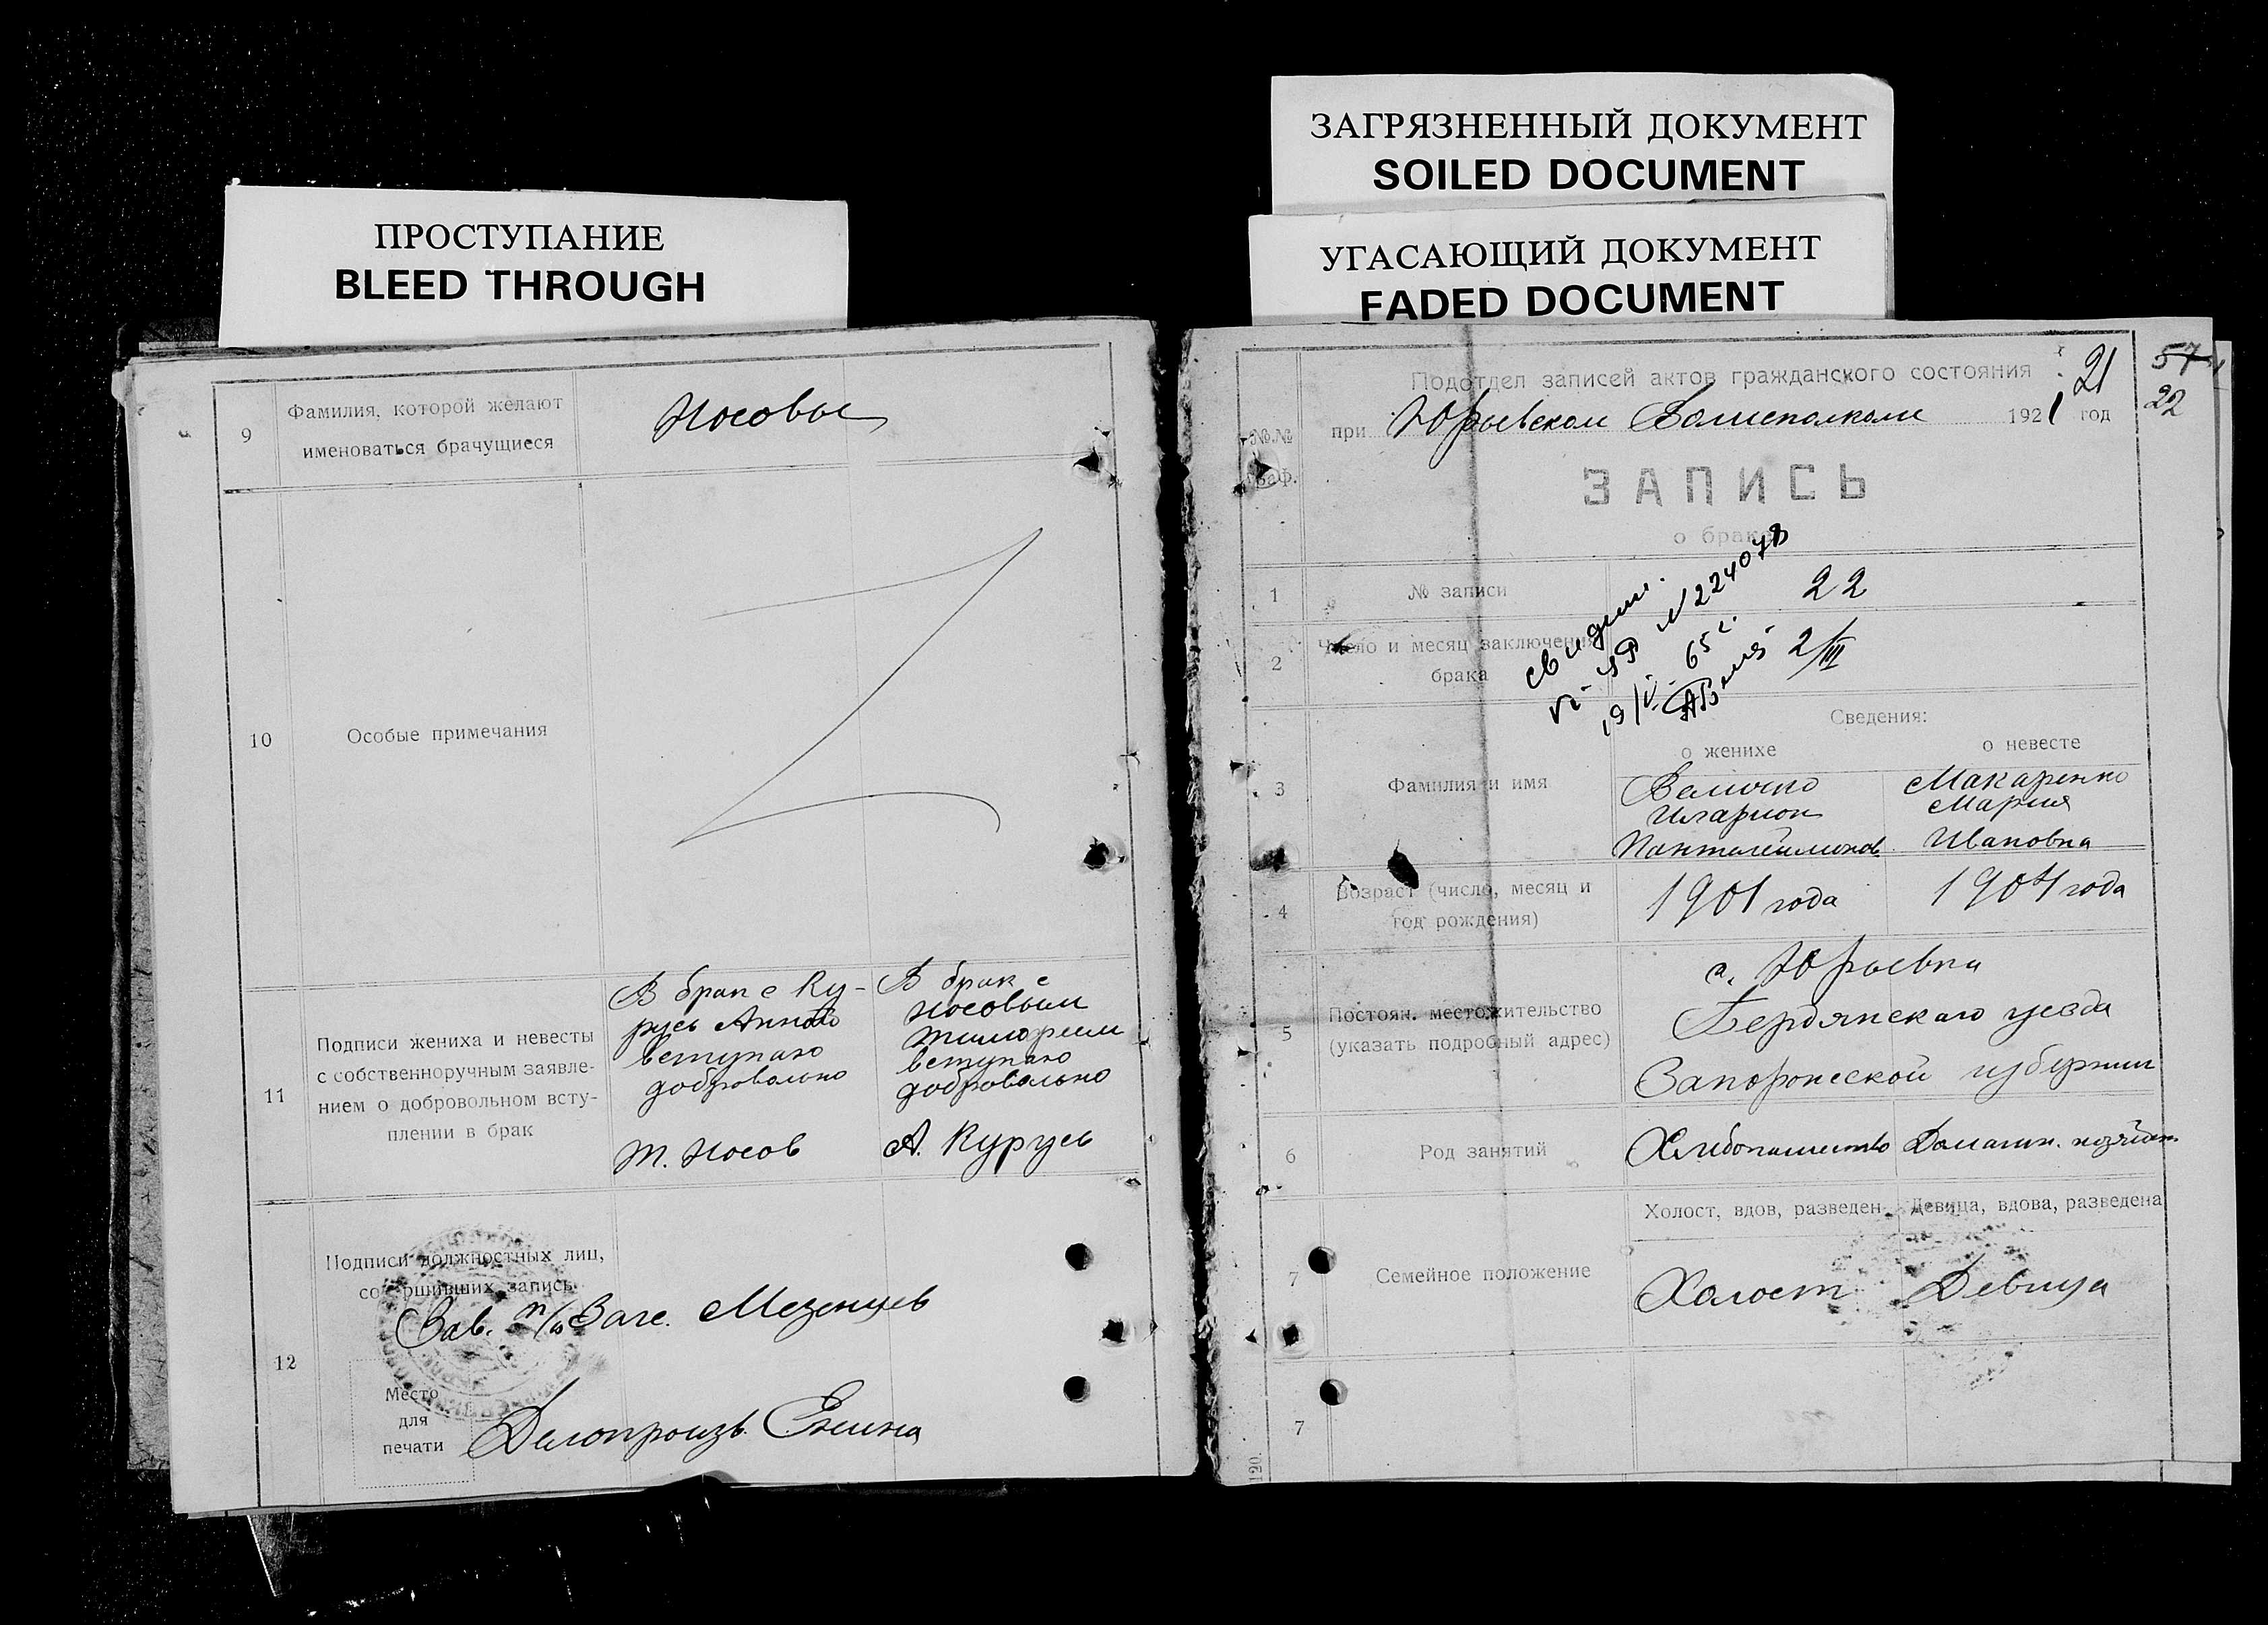 ПРОСТУПАНИЕ
BLEED THROUGH
9
Фамилия, которой желают
именоваться брачущиеся
Носовы
10
Особые примечания
11
Подписи жениха и невесты
с собственноручным заявле-
нием о добровольном всту-
плении в брак
В брак с Ку-
русь Анной
вступаю
добровольно
Т. Носов
В брак с
Носовым
Тимофеем
вступаю
добровольно
А. Курусь
12
Подписи должностных лиц,
совершивших запись
Зав. п/о Загс. Мезенцев
Место
для
печати
Делопроизв.
ЗАГРЯЗНЕННЫЙ ДОКУМЕНТ
SOILED DOCUMENT
УГАСАЮЩИЙ ДОКУМЕНТ
FADED DOCUMENT
57
22
21
Подотдел записей актов гражданского состояния
№№
граф.
при Юрьевском Волисполкоме 1921 год
ЗАПИСЬ
о браке
1
№ записи
22
2
Число и месяц заключения
брака
2/III
свидет.
№ 224078
65 г.
Сведения:
о женихе
о невесте
3
Фамилия и имя
Величко
Иларион
Пантелеймонов.
Макаренко
Мария
Ивановна
4
Возраст (число, месяц и
год рождения)
1901 года
1904 года
5
Постоян. местожительство
(указать подробный адрес)
с. Юрьевка
Бердянскаго уезда
Запорожской губернии
6
Род занятий
Хлибопашество
Домашн. хозяйсн.
Холост, вдов, разведен
Девица, вдова, разведена
7
Семейное положение
Холост
Девица
7
120.